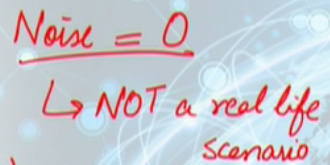 Noise = 0
↳ NOT a real life
scenario